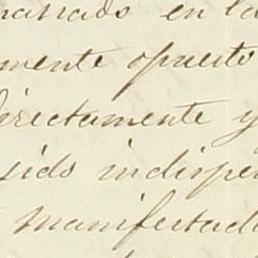 narrado en la
mente opuesto
directamente y
sido indispe
manifestado